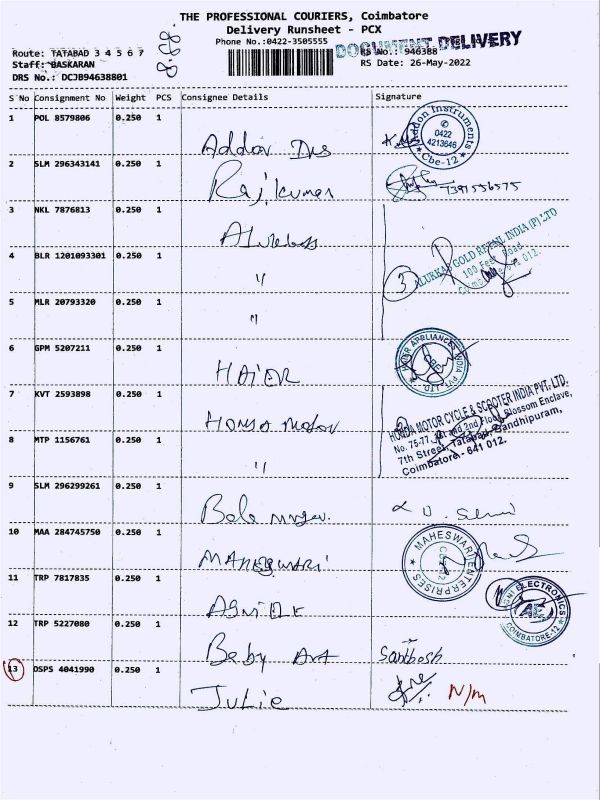 THE PROFESSIONAL COURIERS, Coimbatore
Delivery Runsheet - PCX
Phone No.:0422-3505555
DOCUMENT DELIVERY
Route: TATABAD 3 4 5 6 7
RS No.: 946388
Staff: BASKARAN
RS Date: 26-May-2022
DRS No.: DCJB94638801
S No Consignment No Weight PCS Consignee Details Signature
1 POL 8579806 0.250 1
Addon Instruments
0422
4213646
Cbe-12
2 SLM 296343141 0.250 1
Rajkumar 7391556575
3 NKL 7876813 0.250 1
ALUKKAS GOLD RETAIL INDIA (P) LTD
100 Feet Road
4 BLR 1201093301 0.250 1
" 3
5 MLR 20793320 0.250 1
"
6 GPM 5207211 0.250 1
HAIER
HAIER APPLIANCES INDIA PVT. LTD.
7 KVT 2593898 0.250 1
Honda Motor
HONDA MOTOR CYCLE & SCOOTER INDIA PVT. LTD.
No. 75-77, 1st and 2nd Floor, Blossom Enclave,
7th Street, Tatabad, Gandhipuram,
Coimbatore - 641 012.
8 MTP 1156761 0.250 1
"
9 SLM 296299261 0.250 1
10 MAA 284745750 0.250 1
MAHESWARI
MAHESWARI ENTERPRISES
11 TRP 7817835 0.250 1
AGNI ELECTRONICS
AE
COIMBATORE-12
12 TRP 5227080 0.250 1
Baby Art Santhosh
13 DSPS 4041990 0.250 1
Julie N/m